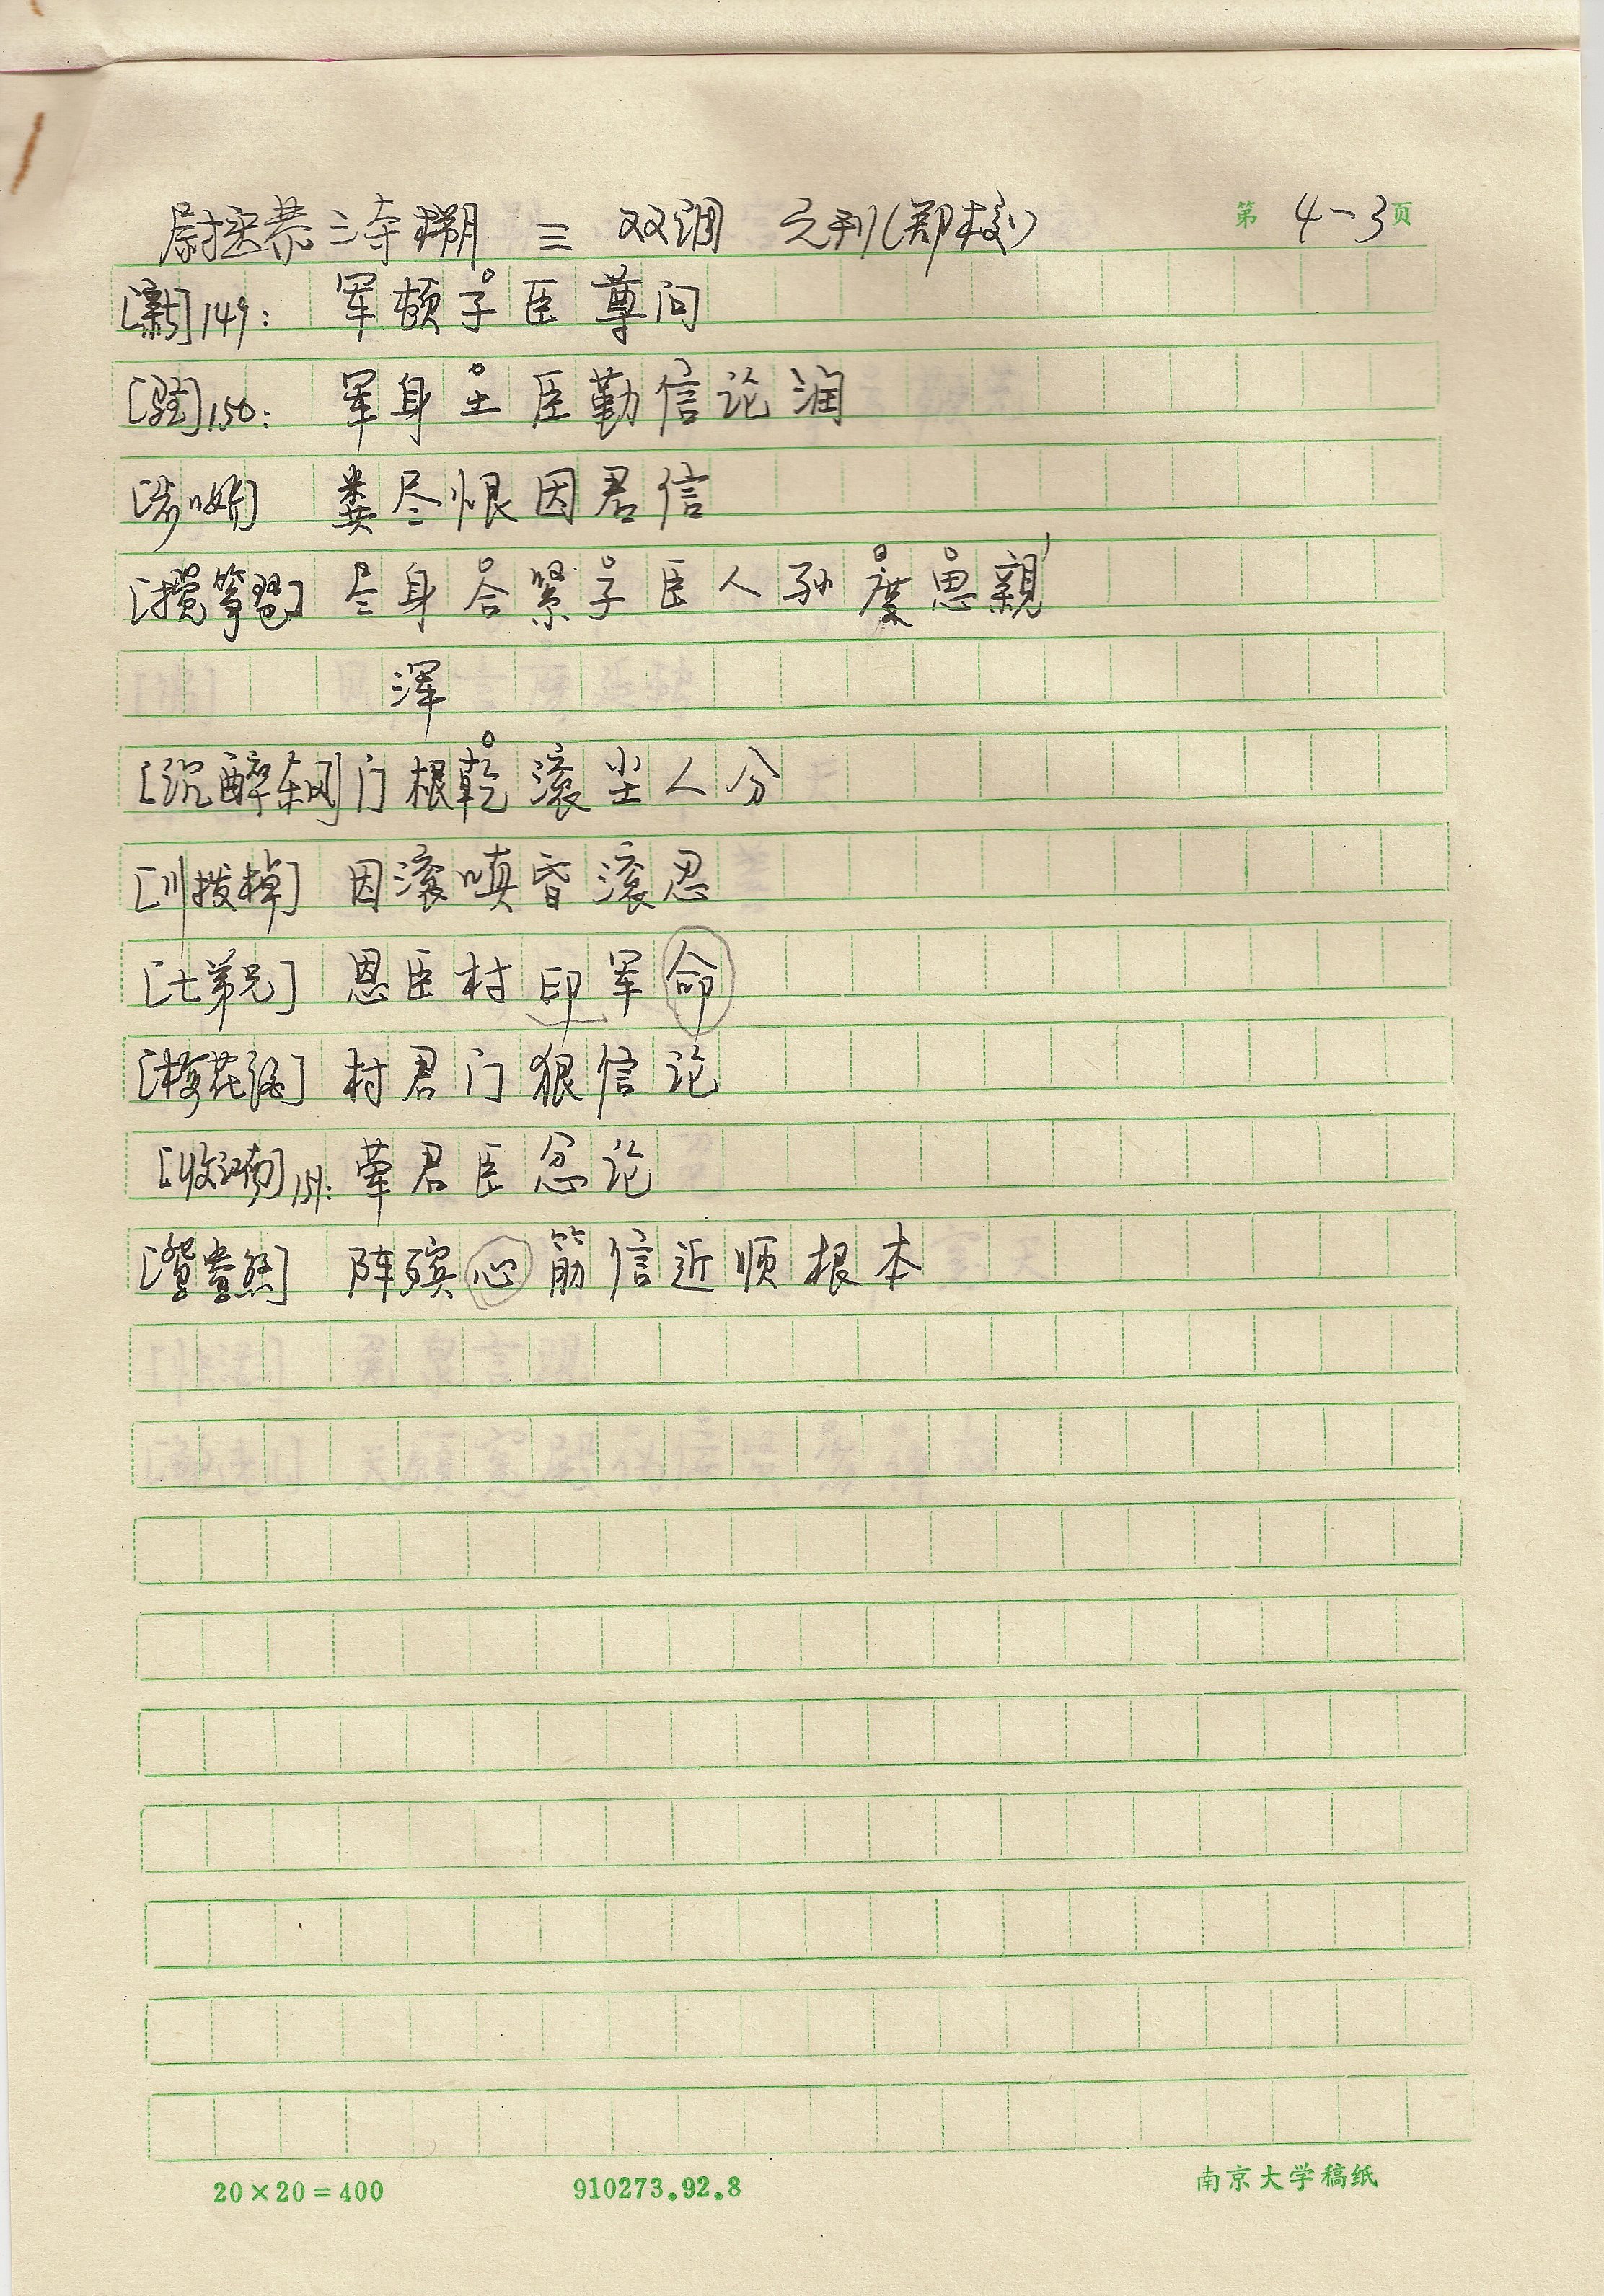 尉迟恭三夺槊 三 双调 元刊(郑校) 第 4-3 页
[新]149: 军顿子臣尊问
[驻]150: 军身尘臣勤信论润
[步步娇] 粪尽恨因君信
[搅筝琶] 尽身合紧子臣人孙度思親
浑
[沉醉东风] 门根乾滚尘人分
[川拨棹] 因滚嗔昏滚忍
[七弟兄] 恩臣村印军命
[梅花酒] 村君门狠信论
[收江南]151: 荤君臣忿论
[鸳鸯煞] 阵殡心筋信近顺根本
20×20=400 910273.92.8 南京大学稿纸